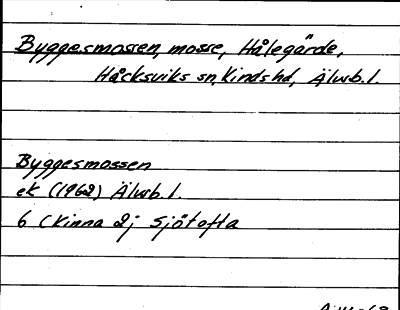 Byggesmossen, mosse, Hålegärde,
Håcksviks sn, Kinds hd, Älvsb. l.
Byggesmossen
ek (1962) Älvsb. l.
6 (Kinna 2j Sjötofta